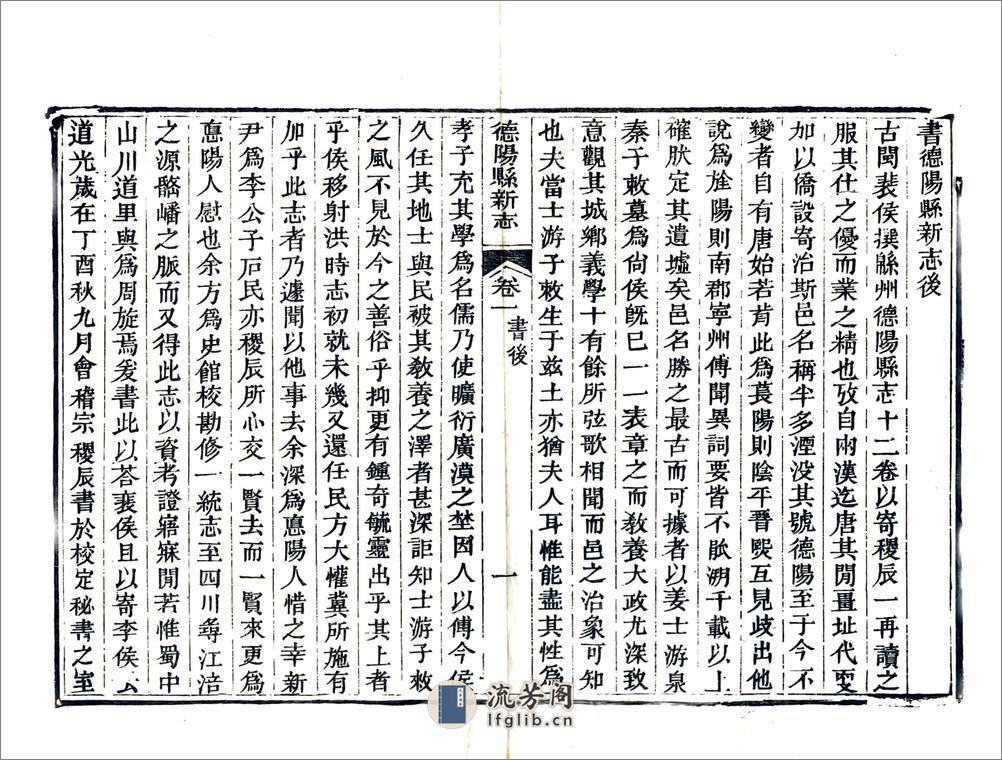 書德陽縣新志後
古閩裴侯撰緜州德陽縣志十二卷以寄稷辰一再讀之
服其仕之優而業之精也攷自兩漢迄唐其閒畺址代更
加以僑設寄治斯邑名稱半多湮没其號德陽至于今不
變者自有唐始若肯此爲萇陽則陰平晋熙互見歧出他
說爲旌陽則南郡寧州傳聞異詞要皆不能溯千載以上
確肰定其遺墟矣邑名勝之最古而可據者以姜士游泉
秦子敕墓爲尙侯旣已一一表章之而敎養大政尤深致
意觀其城鄉義學十有餘所弦歌相聞而邑之治象可知
也夫當士游子敕生于兹土亦猶夫人耳惟能盡其性爲
德陽縣新志
卷一
書後
一
孝子充其學爲名儒乃使曠衍廣漠之埜因人以傅今侯
久任其地士與民被其敎養之澤者甚深詎知士游子敕
之風不見於今之善俗乎抑更有鍾奇毓靈出乎其上者
乎侯移射洪時志初就未幾又還任民方大懽冀所施有
加乎此志者乃遽聞以他事去余深爲悳陽人惜之幸新
尹爲李公子石民亦稷辰所心交一賢去而一賢來更爲
悳陽人慰也余方爲史館校勘修一統志至四川尋江涪
之源嶓之脈而又得此志以資考證寤寐閒若惟蜀中
山川道里與爲周旋焉爰書此以荅裴侯且以寄李侯云
道光歲在丁酉秋九月會稽宗稷辰書於校定秘書之室
流芳阁
lfglib.cn